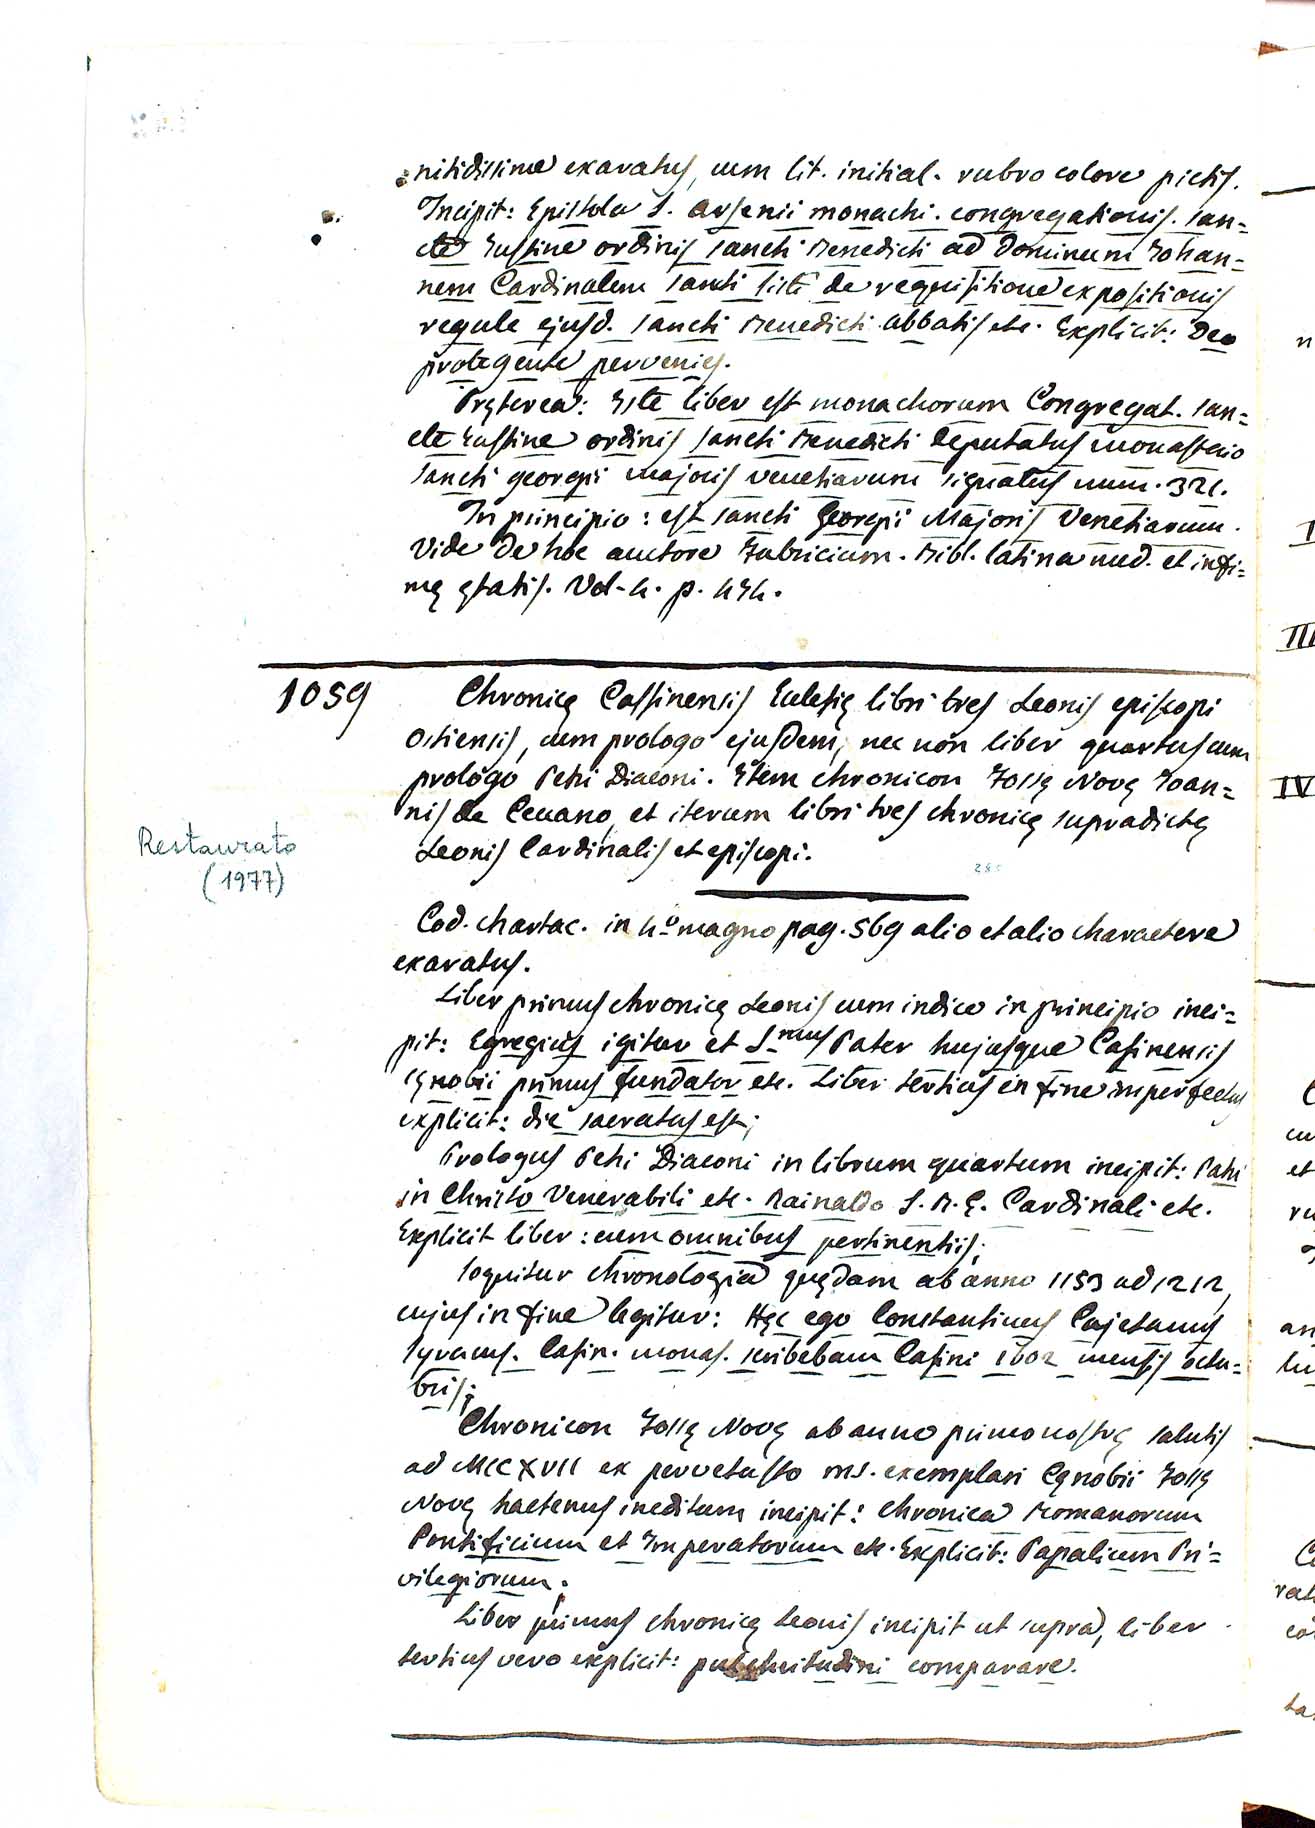 nitidissime exaratus, cum lit. initial. rubro colore pictis.
Incipit: Epistola S. Arsenii monachi. congregationis. san=
cte Iustine ordinis sancti Benedicti ad Dominum Iohan=
nem Cardinalem sancti Sisti de requisitione expositionis
regule ejusd. sancti Benedicti abbatis etc. Explicit: Deo
protegente pervenies.
Pręterea: Iste liber est monachorum Congregat. san=
cte Iustine ordinis sancti Benedicti deputatus monasterio
sancti georgii majoris venetiarum signatus num. 321.
In principio: est sancti Georgii Majoris Venetiarum.
Vide de hoc auctore Fabricium. Bibl. latina med. et infi=
mę ętatis. Vol. 4. p. 434.
1059
Chronicę Cassinensis Eclesię libri tres Leonis episcopi
Ostiensis, cum prologo ejusdem, nec non liber quartus cum
prologo Petri Diaconi. Item chronicon Fossę Novę Ioan=
nis de Cecano, et iterum libri tres chronicę supradictę
Leonis Cardinalis et episcopi.
Restaurato
(1977)
Cod. chartac. in 4º magno pag. 569 alio et alio charactere
exaratus.
Liber primus chronicę Leonis cum indice in principio inci=
pit: Egregius igitur et S.mus Pater hujusque Casinensis
cęnobii primus fundator etc. Liber tertius in fine imperfectus
explicit: die sacratus est;
Prologus Petri Diaconi in librum quartum incipit: Patri
in Christo Venerabili etc. Rainaldo S. R. E. Cardinali etc.
Explicit liber: cum omnibus pertinentiis;
Sequitur chronologia quędam ab anno 1153 ad 1212,
cujus in fine legitur: Hęc ego Constantinus Cajetanus
Syracus. Casin. monas. scribebam Casini 1602 mensis octu=
bris;
Chronicon Fossę Novę ab anno primo nostrę salutis
ad MCCXVII ex pervetusto ms. exemplari Cęnobii Fossę
Novę hactenus ineditum incipit: Chronica Romanorum
Pontificium et Imperatorum etc. Explicit: Papalium Pri=
vilegiorum;
Liber primus chronicę Leonis incipit ut supra, liber
tertius vero explicit: pulchritudini comparare.
III
IV